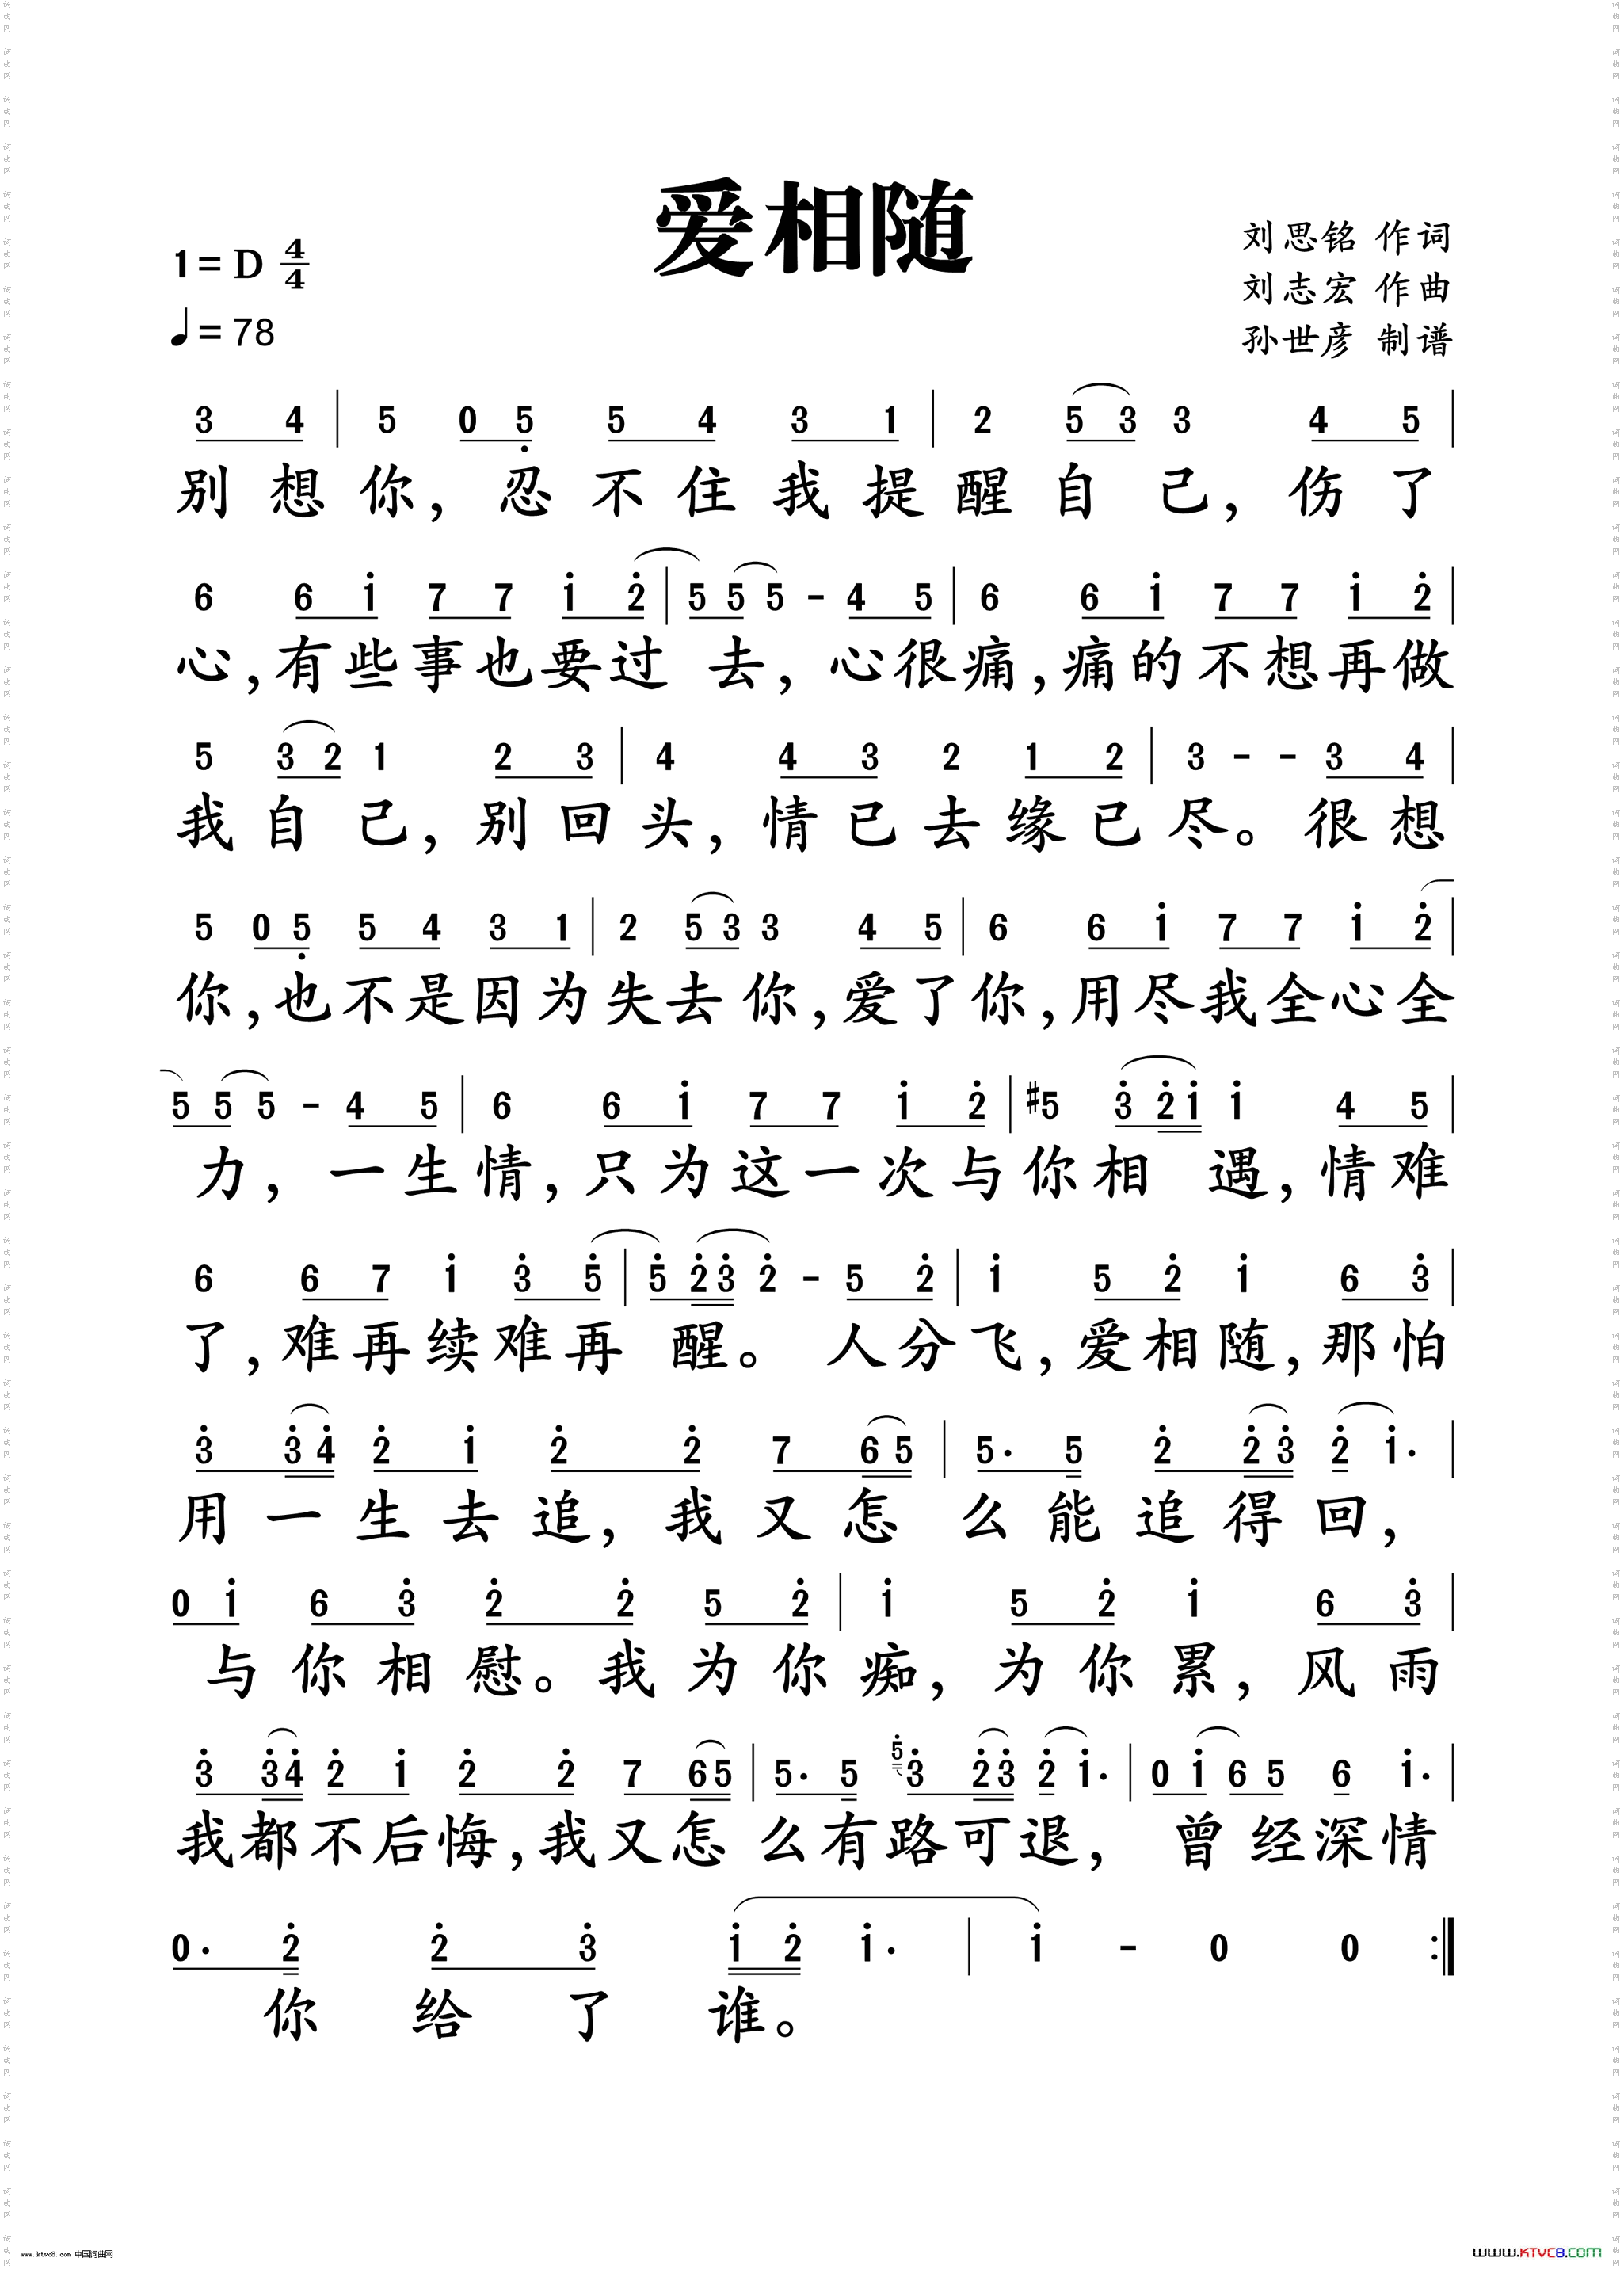 爱相随
1=D 4/4
♩=78
刘思铭 作词
刘志宏 作曲
孙世彦 制谱
3 4 | 5 0 5̣ 5 4 3 1 | 2 5 3 3 4 5 |
别想你,忍不住我提醒自己,伤了
6 6 i 7 7 i 2̇ | 5 5 5 - 4 5 | 6 6 i 7 7 i 2̇ |
心,有些事也要过去,心很痛,痛的不想再做
5 3 2 1 2 3 | 4 4 3 2 1 2 | 3 - - 3 4 |
我自己,别回头,情已去缘已尽。很想
5 0 5̣ 5 4 3 1 | 2 5 3 3 4 5 | 6 6 i 7 7 i 2̇ |
你,也不是因为失去你,爱了你,用尽我全心全
5 5 5 - 4 5 | 6 6 i 7 7 i 2̇ | #5 3̇ 2̇ i i 4 5 |
力,一生情,只为这一次与你相遇,情难
6 6 7 i 3̇ 5̇ | 5̇ 2̇ 3̇ 2̇ - 5 2̇ | i 5 2̇ i 6 3̇ |
了,难再续难再醒。人分飞,爱相随,那怕
3̇ 3̇ 4̇ 2̇ i 2̇ 2̇ 7 6 5 | 5· 5 2̇ 2̇ 3̇ 2̇ i· |
用一生去追,我又怎么能追得回,
0 i 6 3̇ 2̇ 2̇ 5 2̇ | i 5 2̇ i 6 3̇ |
与你相慰。我为你痴,为你累,风雨
3̇ 3̇ 4̇ 2̇ i 2̇ 2̇ 7 6 5 | 5· 5 5̇ 3̇ 2̇ 3̇ 2̇ i· | 0 i 6 5 6 i· |
我都不后悔,我又怎么有路可退,曾经深情
0· 2̇ 2̇ 3̇ i 2̇ i· | i - 0 0 :|
你给了谁。
www.ktvc8.com 中国词曲网
WWW.KTVC8.COM